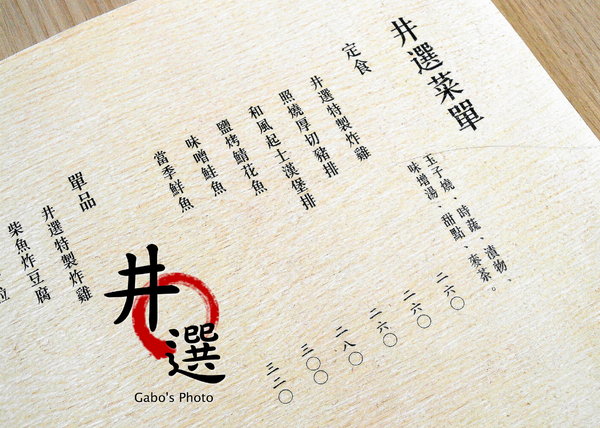 井選菜單
玉子燒、時蔬、漬物、
味噌湯、甜點、麥茶。
定食
井選特製炸雞 二六〇
照燒厚切豬排 二六〇
和風起士漢堡排 二六〇
鹽烤鯖花魚 二八〇
味噌鮭魚 三〇〇
當季鮮魚 三二〇
單品
井選特製炸雞
柴魚炸豆腐
井選
Gabo's Photo